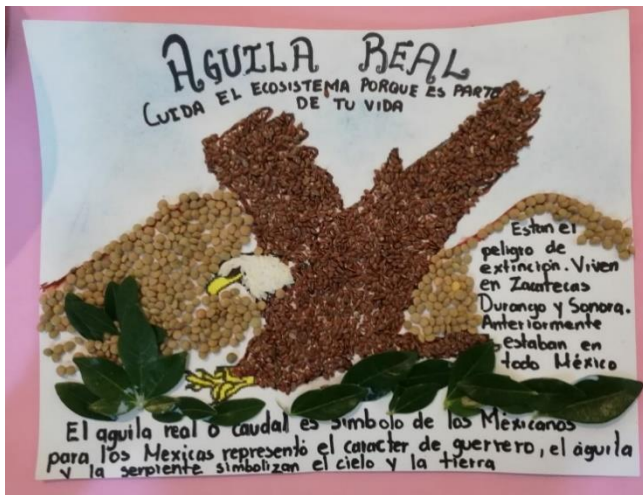 AGUILA REAL
CUIDA EL ECOSISTEMA PORQUE ES PARTE
DE TU VIDA
Estan el
peligro de
extinción. Viven
en Zacatecas
Durango y Sonora.
Anteriormente
estaban en
todo México
El aguila real o caudal es simbolo de los Méxicanos
para los Mexicas representó el caracter de guerrero, el águila
y la serpiente simbolizan el cielo y la tierra